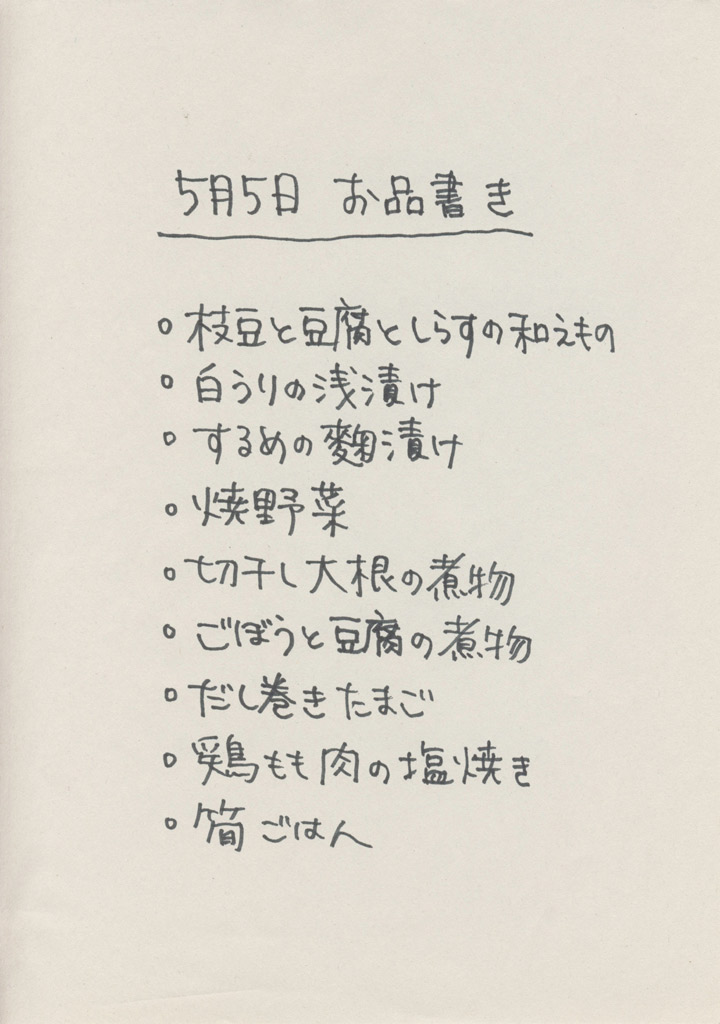 5月5日 お品書き
・枝豆と豆腐としらすの和えもの
・白うりの浅漬け
・するめの麴漬け
・焼野菜
・切干し大根の煮物
・ごぼうと豆腐の煮物
・だし巻きたまご
・鶏もも肉の塩焼き
・筍ごはん